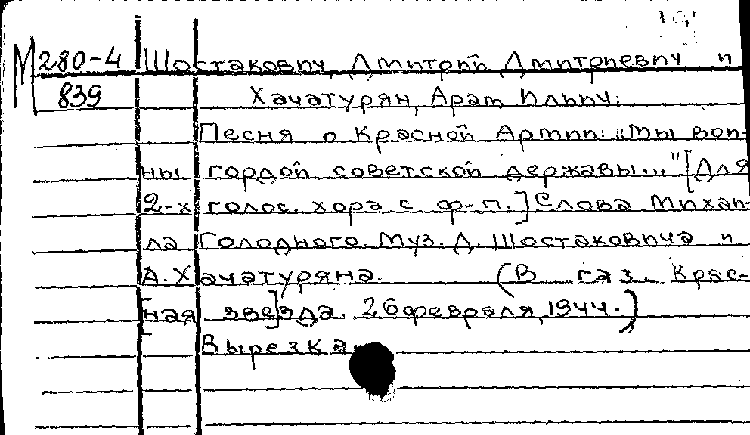 М 280-4 Шостакович, Дмитрий Дмитриевич и
839 Хачатурян, Арам Ильич:
Песня о Красной Армии: „Мы вои-
ны гордой советской державы..." [Для
2-х голос. хора с ф-п.] Слова Михаи-
ла Голодного. Муз. Д. Шостаковича и
А. Хачатуряна. (В газ. Крас-
[ная зве]зда. 26 февраля, 1944.)
Вырезка